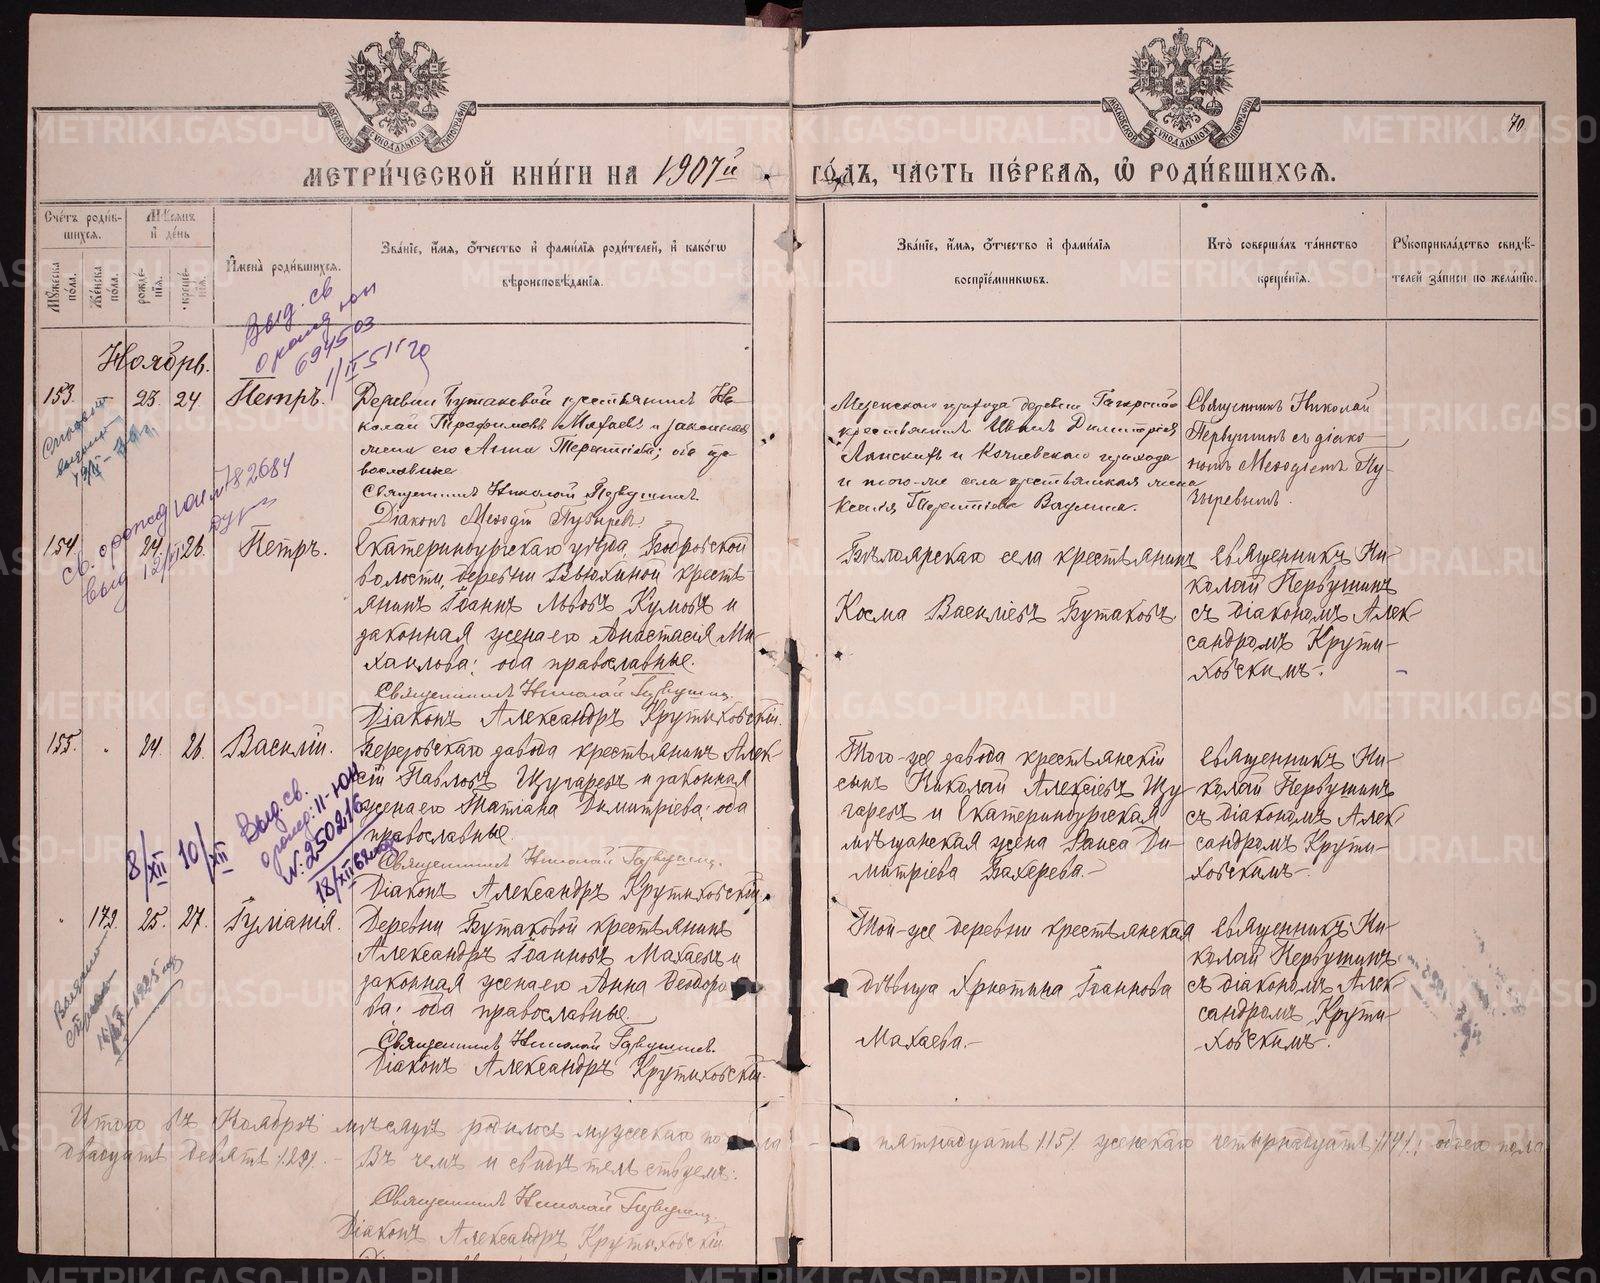 70.
МЕТРИ́ЧЕСКОЙ КНИ́ГИ НА 1907й ГО́ДЪ, ЧАСТЬ ПЕ́РВАЯ, Ѡ РОДИ́ВШИХСЯ.
Сче́тъ роди́в-
шихся.
Мѣсяцъ
и де́нь
Му́жеска по́ла.
Же́нска по́ла.
рожде́-
нія.
креще́-
нія.
Имена̀ роди́вшихся.
Зва́ніе, и́мя, о́тчество и фами́лія роди́телей, и како́гѡ
вѣроисповѣ́данія.
Зва́ніе, и́мя, о́тчество и фами́лія
воспріе́мникѡвъ.
Кто̀ соверша́лъ та́инство
креще́нія.
Рукоприкла́дство свидѣ́-
телей за́писи по жела́нію.
Выд. св
о рожд юн
694503
Ноябрь.
153. 23. 24. Петръ.
Деревни Бутаковой крестьянинъ Ни-
колай Трофимовъ Махаевъ и законная
жена его Анна Терентіева; оба пра-
вославные
Священникъ Николай Первушинъ
Діаконъ Меѳодій Пузыревъ.
Мезенскаго прихода деревни
крестьянинъ Иванъ Димитріев
и того-же села крестьянская жена
Ксенія Терентіева
Священникъ Николай
Первушинъ съ діако-
номъ Меѳодіемъ Пу-
зыревымъ.
св. о рожд юн № 782684
выд
154. 24. 26. Петръ.
Екатеринбургскаго уѣзда, Бобровской
волости, деревни Вьюхиной кресть-
янинъ Іоаннъ Львовъ Кумовъ и
законная жена его Анастасія Ми-
хаилова; оба православные.
Священникъ Николай Первушинъ.
Діаконъ Александръ Крутиховскій.
Бѣлоярскаго села крестьянинъ
Косма Василіевъ Бутаковъ.
Священникъ Ни-
колай Первушинъ
съ діакономъ Алек-
сандромъ Крути-
ховскимъ.
155. 24. 26. Василій.
Березовскаго завода крестьянинъ Алек-
сій Павловъ Щугаревъ и законная
жена его Татіана Димитріева; оба
православные.
Священникъ Николай Первушинъ.
Діаконъ Александръ Крутиховскій.
Того-же завода крестьянскій
сынъ Николай Алексіевъ Щу-
гаревъ и Екатеринбургская
мѣщанская жена Раиса Ди-
митріева Бахерева.
Священникъ Ни-
колай Первушинъ
съ діакономъ Алек-
сандромъ Крути-
ховскимъ.
8/XII 10/XII
Выд. св.
о рожд. II-ЮН
№ 250216
179. 25. 27. Іуліанія.
Деревни Бутаковой крестьянинъ
Александръ Іоанновъ Махаевъ и
законная жена его Анна Ѳеодоро-
ва; оба православные.
Священникъ Николай Первушинъ.
Діаконъ Александръ Крутиховскій.
Той-же деревни крестьянская
дѣвица Христина Іоаннова
Махаева.
Священникъ Ни-
колай Первушинъ
съ діакономъ Алек-
сандромъ Крути-
ховскимъ.
Итого въ Ноябрѣ мѣсяцѣ родилось мужескаго пола пятнадцать /15/ женскаго четырнадцать /14/; обоего пола
двадцать девять /29/. – Въ чемъ и свидѣтельствуемъ:
Священникъ Николай Первушинъ.
Діаконъ Александръ Крутиховскій
METRIKI.GASO-URAL.RU